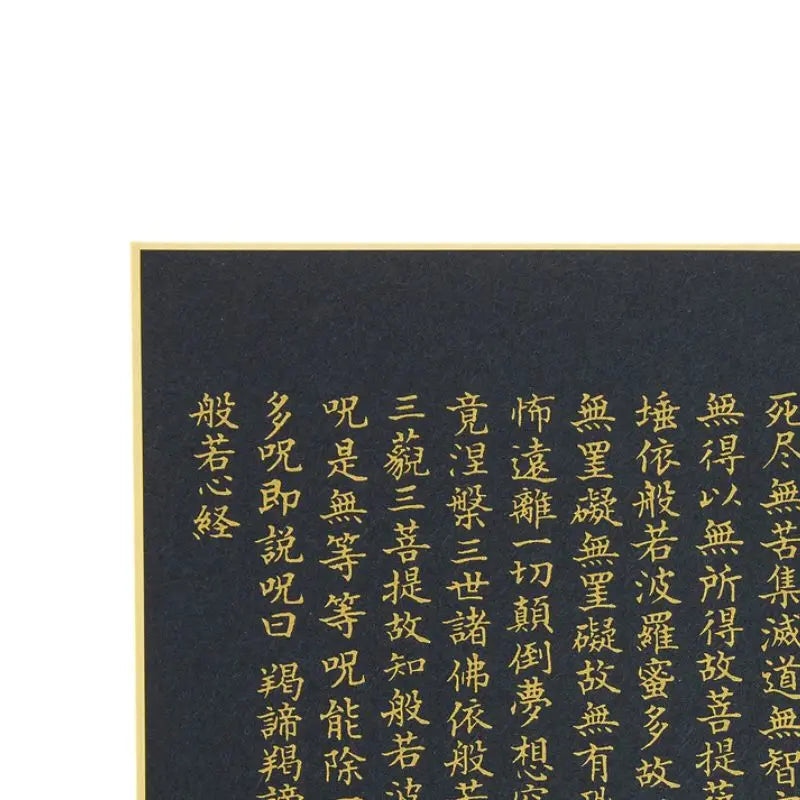 死尽無苦集滅道無智
無得以無所得故菩提
埵依般若波羅蜜多故
無罣礙無罣礙故無有
怖遠離一切顛倒夢想
竟涅槃三世諸佛依般
三藐三菩提故知般若波
呪是無等等呪能除一
多呪即説呪曰 羯諦羯諦
般若心経